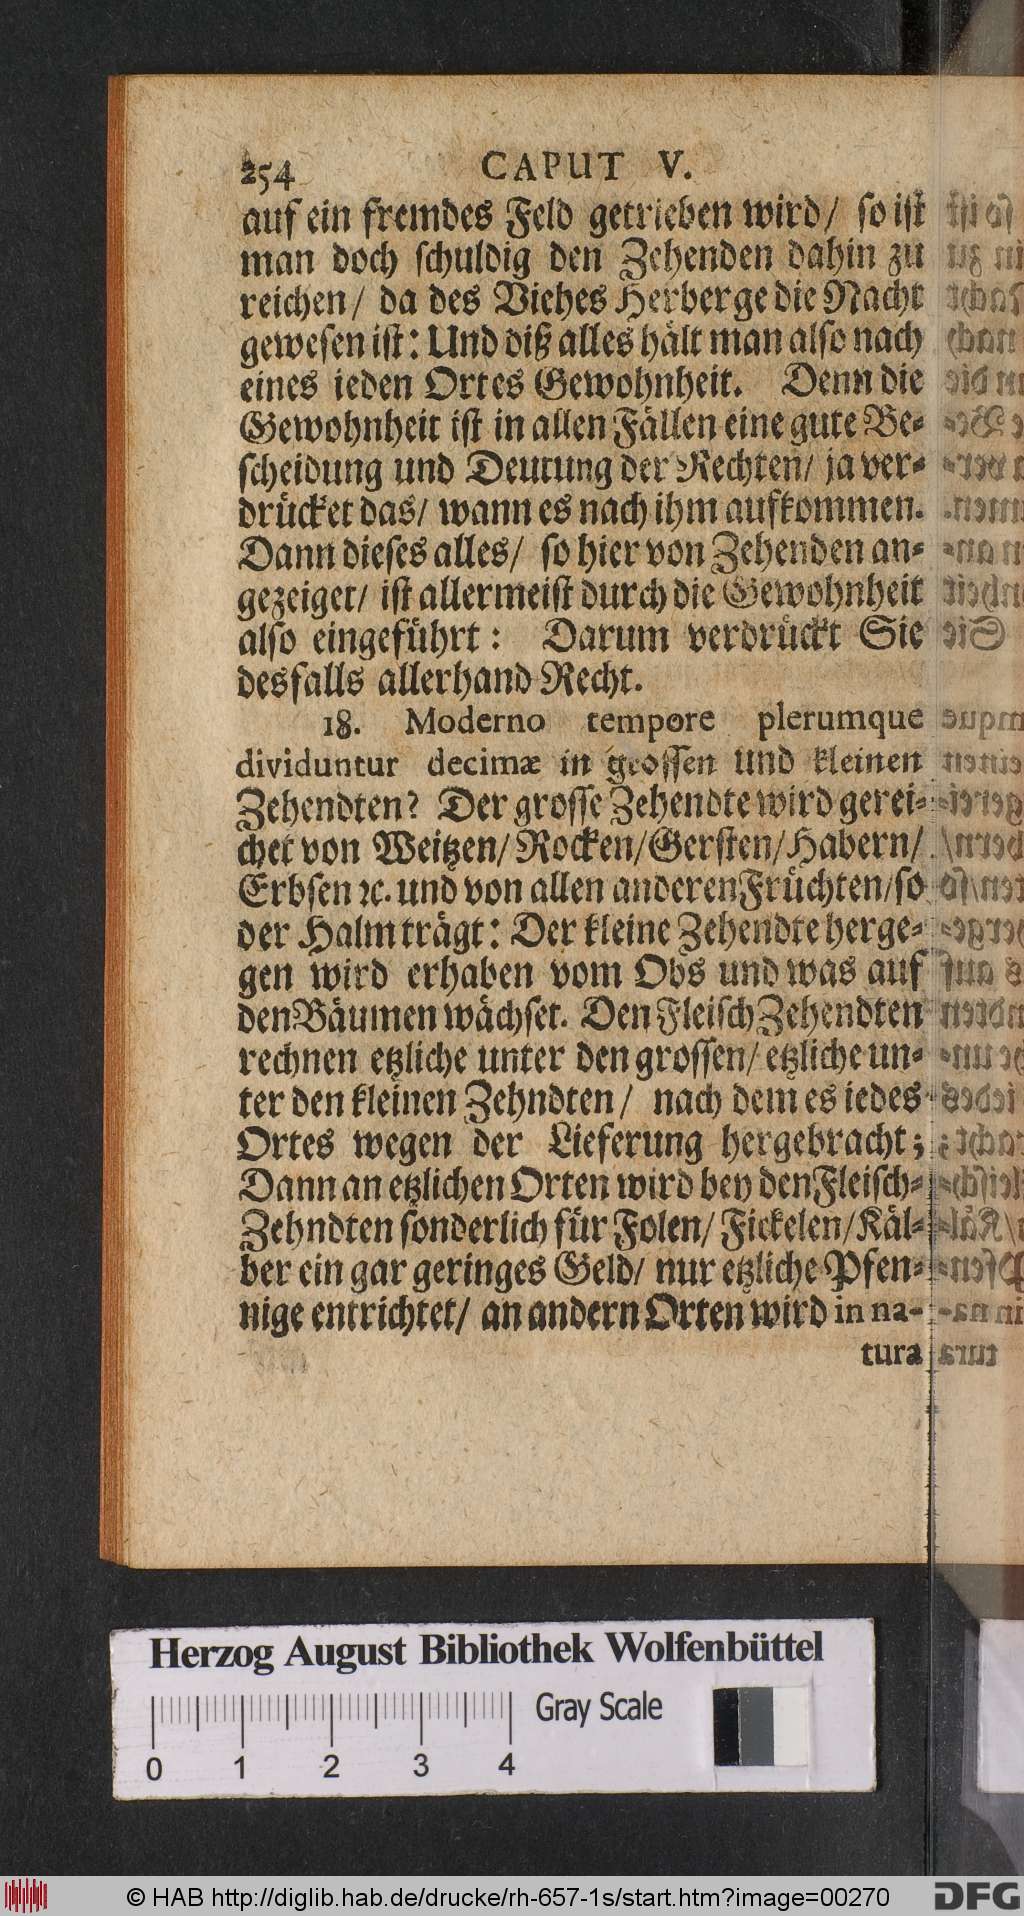 254 CAPUT V.
auf ein fremdes Feld getrieben wird/ so ist
man doch schuldig den Zehenden dahin zu
reichen/ da des Viehes Herberge die Nacht
gewesen ist: Und diß alles hält man also nach
eines ieden Ortes Gewohnheit. Denn die
Gewohnheit ist in allen Fällen eine gute Be-
scheidung und Deutung der Rechten/ ja ver-
drücket das/ wann es nach ihm aufkommen.
Dann dieses alles/ so hier von Zehenden an-
gezeiget/ ist allermeist durch die Gewohnheit
also eingeführt: Darum verdrückt Sie
desfalls allerhand Recht.
18. Moderno tempore plerumque
dividuntur decimæ in grossen und kleinen
Zehendten? Der grosse Zehendte wird gerei-
chet von Weitzen/ Rocken/ Gersten/ Habern/
Erbsen ꝛc. und von allen anderen Früchten/ so
der Halm trägt: Der kleine Zehendte herge-
gen wird erhaben vom Obs und was auf
den Bäumen wächset. Den Fleisch Zehendten
rechnen etzliche unter den grossen/ etzliche un-
ter den kleinen Zehndten/ nach dem es iedes
Ortes wegen der Lieferung hergebracht;
Dann an etzlichen Orten wird bey den Fleisch-
Zehndten sonderlich für Folen/ Fickelen/ Käl-
ber ein gar geringes Geld/ nur etzliche Pfen-
nige entrichtet/ an andern Orten wird in na-
tura
Herzog August Bibliothek Wolfenbüttel
Gray Scale
0 1 2 3 4
© HAB http://diglib.hab.de/drucke/rh-657-1s/start.htm?image=00270
DFG